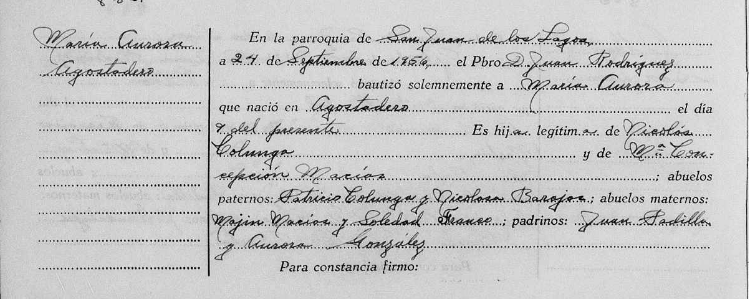 María Aurora
Agostadero
En la parroquia de San Juan de los Lagos,
a 24 de Septiembre de 1956, el Pbro D. Juan Rodríguez
bautizó solemnemente a María Aurora
que nació en Agostadero el día
9 del presente Es hija legítima de Nicolás
Colunga y de Mª Con-
cepción Macías ; abuelos
paternos: Patricio Colunga y Nicolasa Barajas ; abuelos maternos:
Majin Macías y Soledad Franco ; padrinos: Juan Padilla
y Aurora González
Para constancia firmo: